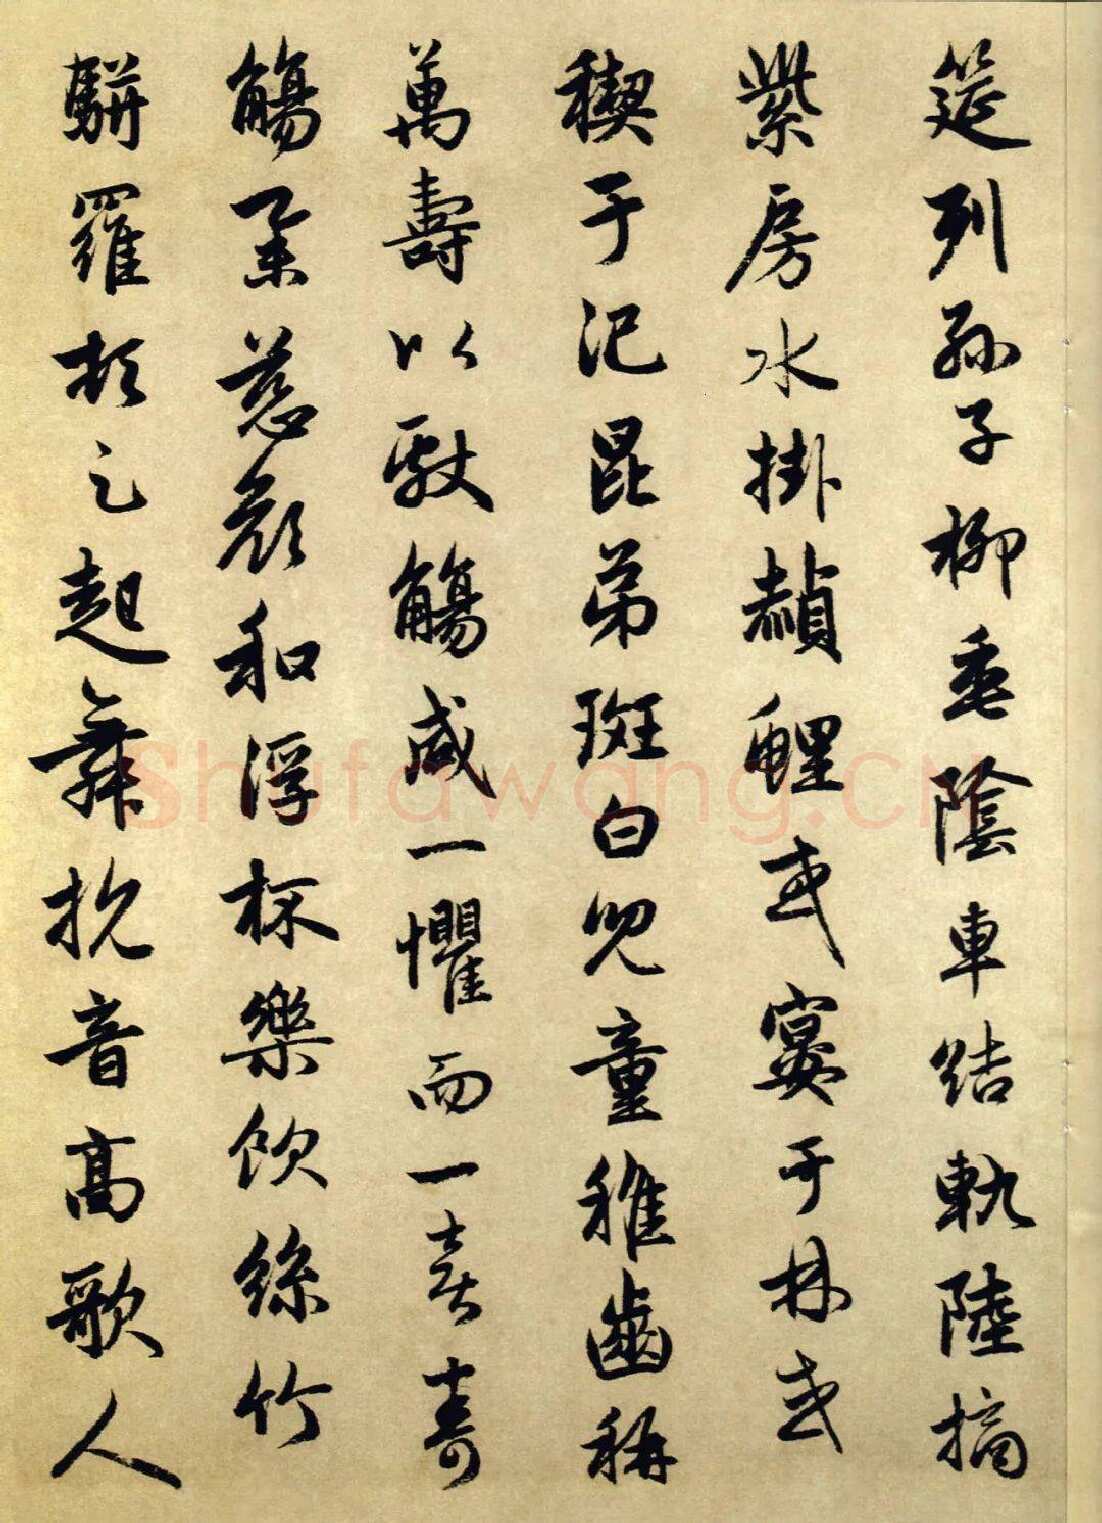 筵列孫子柳垂陰車結軌陸摘
紫房水掛赬鯉或宴于林或
禊于汜昆弟斑白兒童稚齒稱
萬壽以獻觴咸一懼而一喜壽
觴舉慈顏和浮杯樂飲絲竹
駢羅頓足起舞抗音高歌人
Shufawang.CN